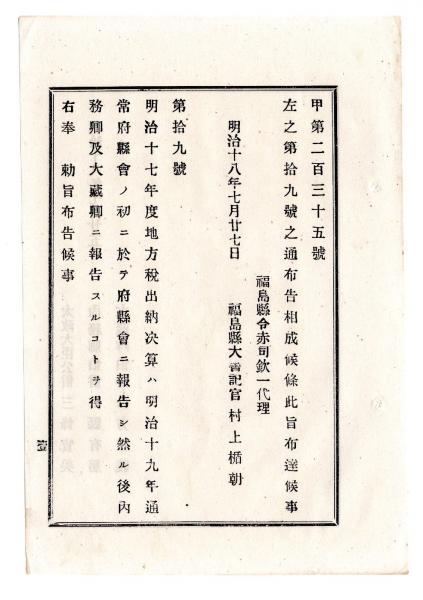 甲第二百三十五號
左之第拾九號之通布告相成候條此旨布達候事
福島縣令赤司欽一代理
明治十八年七月廿七日　福島縣大書記官村上楯朝
第拾九號
明治十七年度地方税出納決算ハ明治十九年通
常府縣會ノ初ニ於テ府縣會ニ報告シ然ル後內
務卿及大藏卿ニ報告スルコトヲ得
右奉　勅旨布告候事